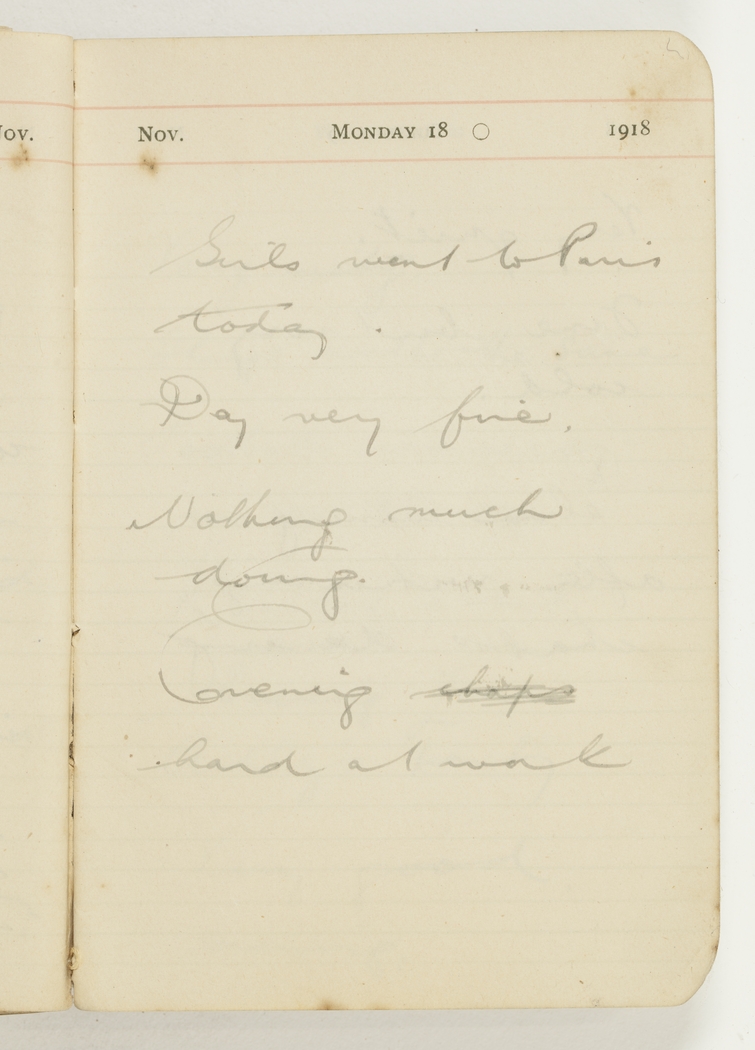 Nov.
Nov. Monday 18 1918
Girls went to Paris
today.
Day very fine.
Nothing much
doing.
Evening chaps
hard at work